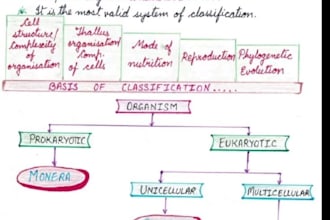 It is the most valid system of classification.
Cell structure/ complexity of organisation
Thallus organisation/ comp. of cells
Mode of nutrition
Reproduction
Phylogenetic Evolution
BASIS OF CLASSIFICATION.....
ORGANISM
PROKARYOTIC
EUKARYOTIC
MONERA
UNICELLULAR
MULTICELLULAR